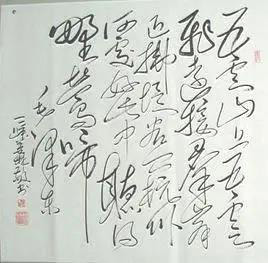 五雲山上五雲
飛遠接群峰
近拂堤若问杭州
何處好此中聽得
野莺啼
毛泽东